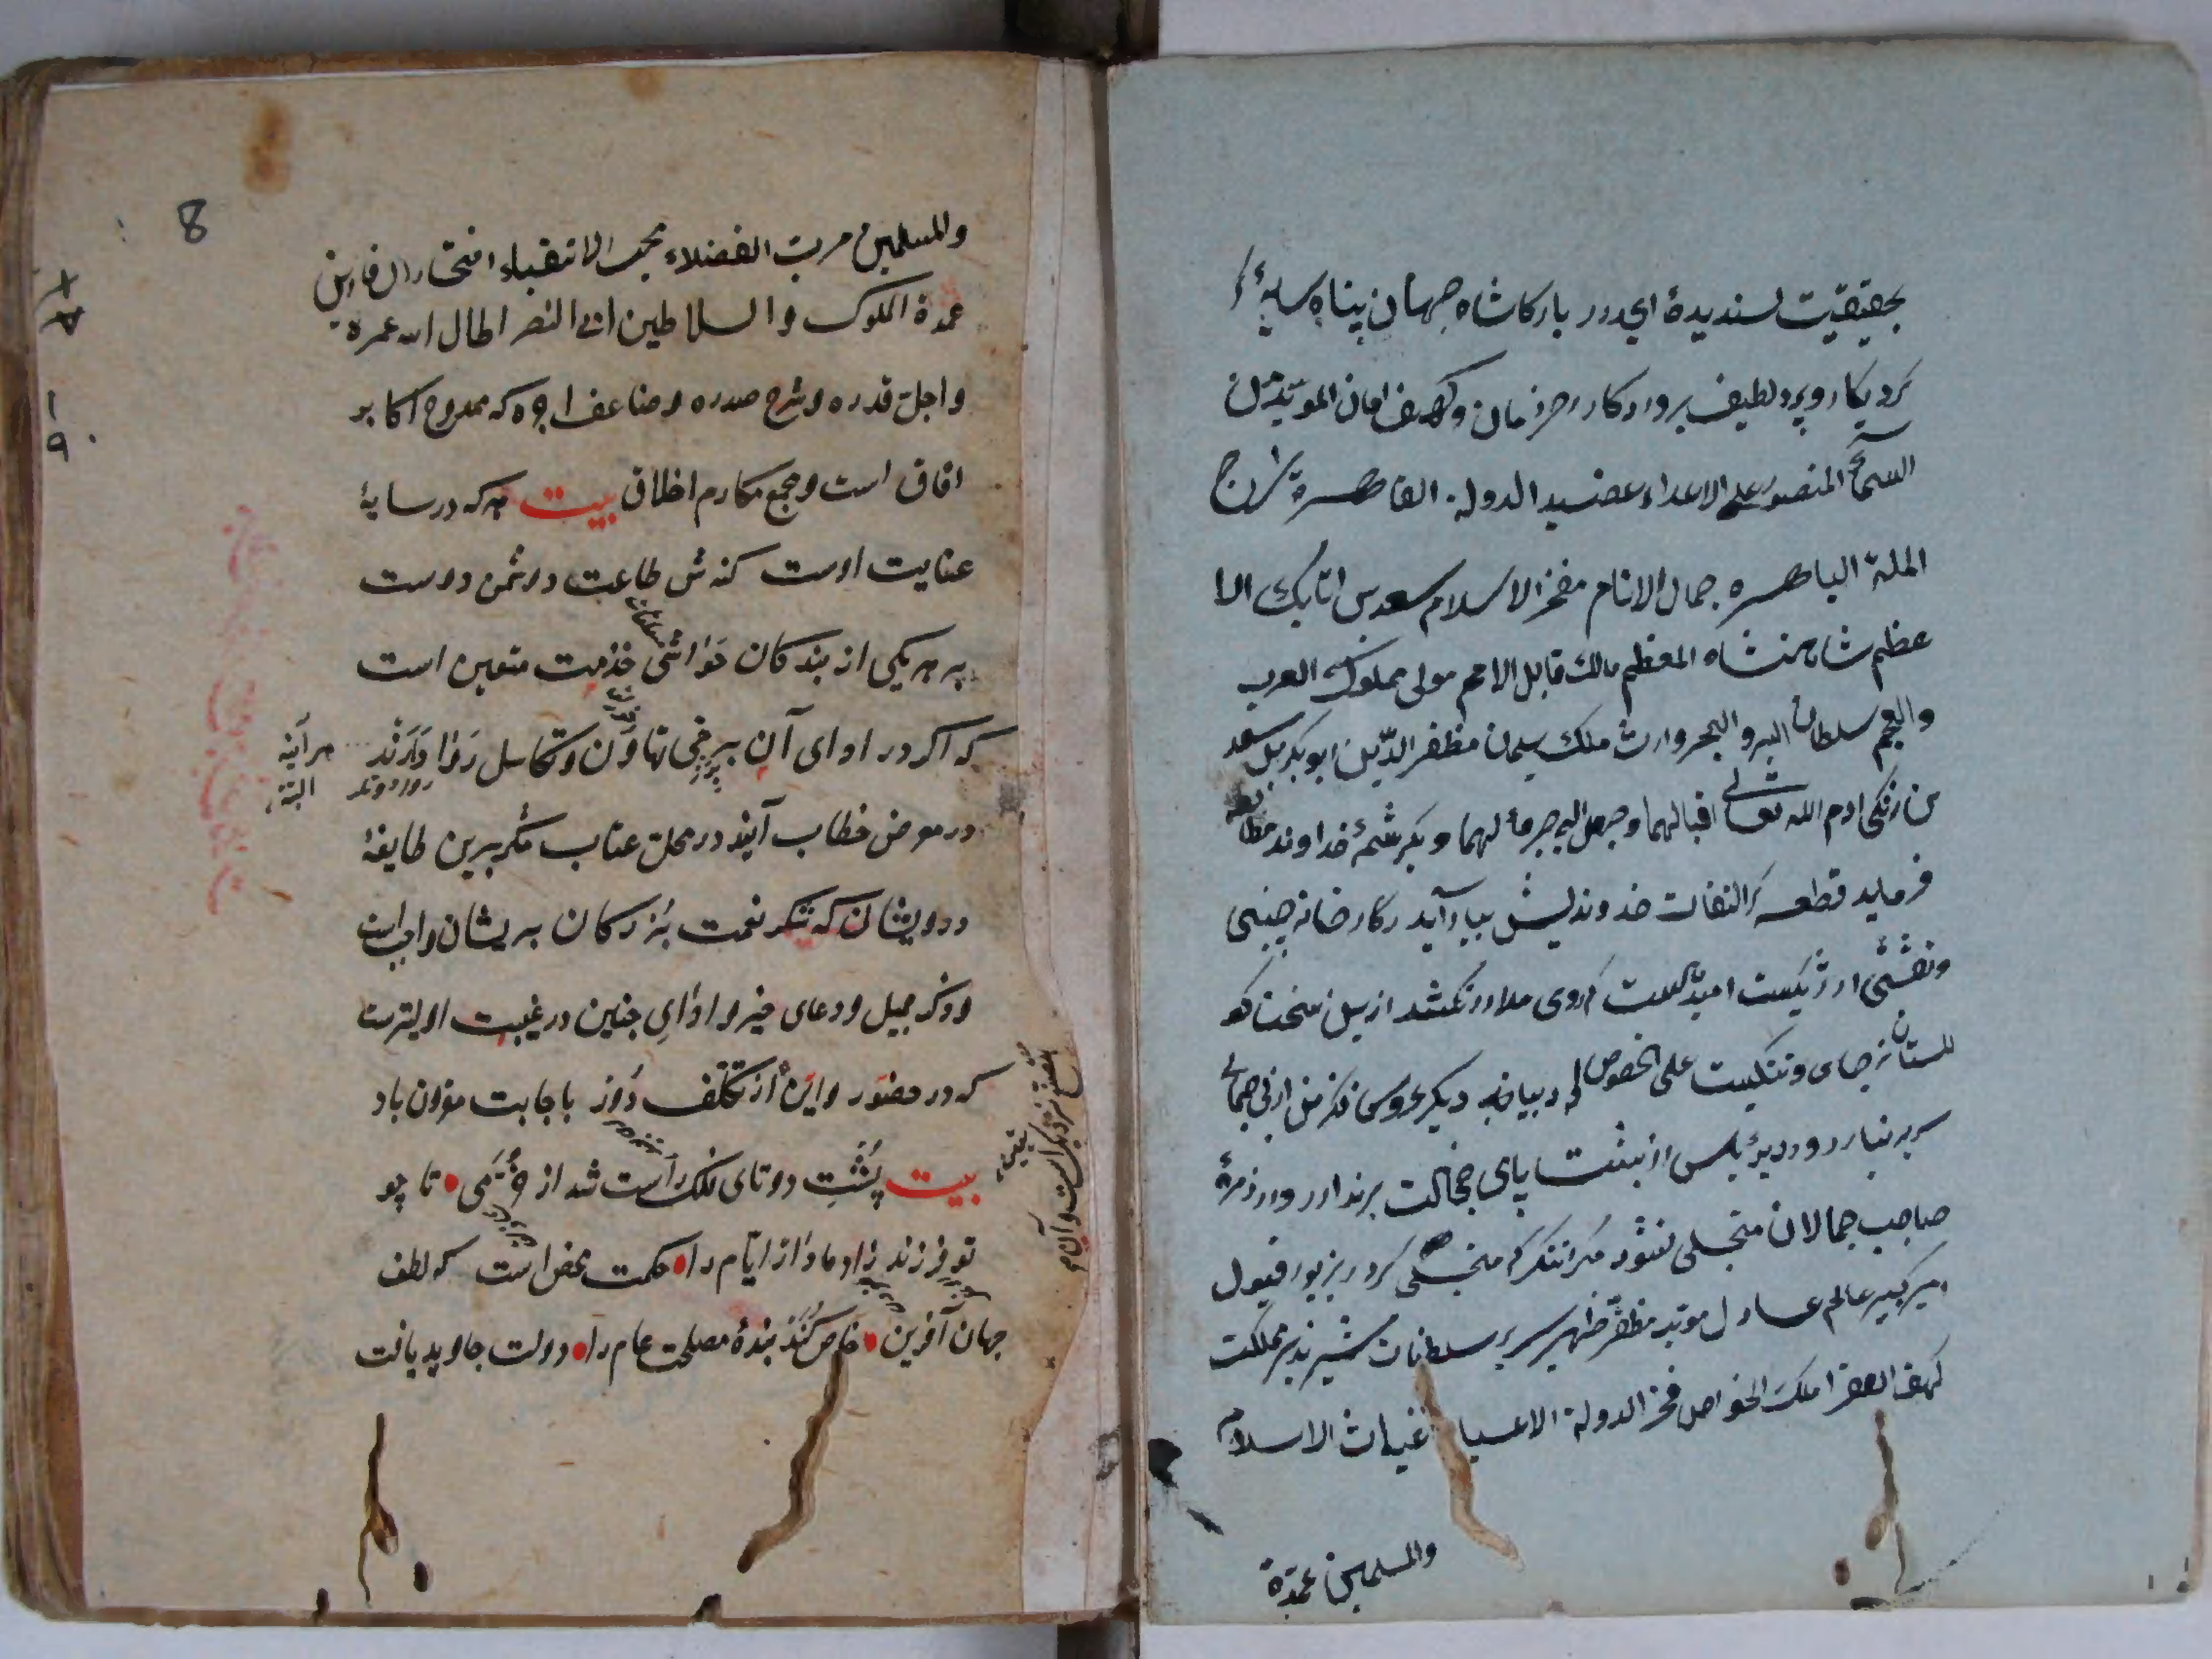 بحقیقیت لسندیدهٔ ای درر بارکاشاه جهان پناه سایهٔ
کردیکار وپرو لطیف پروردکار رحزمان وکهف امان المویّد من
السمآء المنصور علی الاعداء عضید الدولة القاهرة سراج
الملة الباهره جمال الانام مفخر الاسلام سعد بن اتابک الا
عظم شاهنشاه المعظم مالک قابل الامم مولی مملوک العرب
والعجم سلطان البر والبحر وارث ملک سلیمان مظفر الدّین ابوبکر بن سعد
بن زنکی ادم الله تعالی اقبالهما وجعل الی جرما لهما وبکرشمهٔ خداوند مطالعه
فرماید قطعه کرالتفات خدوندیش بیاراید رکارخانه چینی
ونقشی ارژنکیست امید هست که روی ملال در نکشد ازین سخن که
کلستان نه جای دلتنکیست علی الخصوص که دیباچه دیکر عروسی فکر من از بی جمالی
سر بر نیارد ودیدۀ یاس از پشت پای خجالت برندارد ودر زمرهٔ
صاحب جمالان متجلی نشود مکر انکه که متحلی کردد بزیور قبول
امیر کبیر عالم عادل موید مظفّر ظهیر سریر سلطانت مشیر تدبیر مملکت
کهف الفقرا ملک الخواص فخر الدولة الاعسیا غیاث الاسلام
والمسلمین عمدة
8
والمسلمین مربّ الفضلاء محب الاتقیاء افتخار ال فارس
عمدة الملوک والسلاطین ابی النصر اطال الله عمره
واجلّ قدره وشرح صدره وضاعف اجره که ممدوح اکابر
افاق است ومجمع مکارم اخلاق بیت هرکه در سایهٔ
عنایت اوست کنه ش طاعت دوشمن دوست
په هر یکی از بندکان حَوٰاشی خدمت متعین است
که اکر در ادای آن ببرخی تهاوُن وتکاسل رَوٰا دٰارَند
هرآینه
البته
در موض خطاب آیند در محل عتاب مکر برین طایفهٔ
ددویشان که شکر نعمت بُزرکان بریشان واجب است
وذکر جمیل ودعای خیر واداٰیِ چنین در غیبت اولیترست
که در حضور واین از تکلّف دُور باجابت مقرون باد
بیت پُشتِ دوتای فلک راست شد از خُرّمی تا چو
تو فرزند زاد مادٰر ایّام را حکمت محض است که لطف
جهان آفرین خاص کُنَد بندهٔ مصلحت عام را دولت جاوید یافت